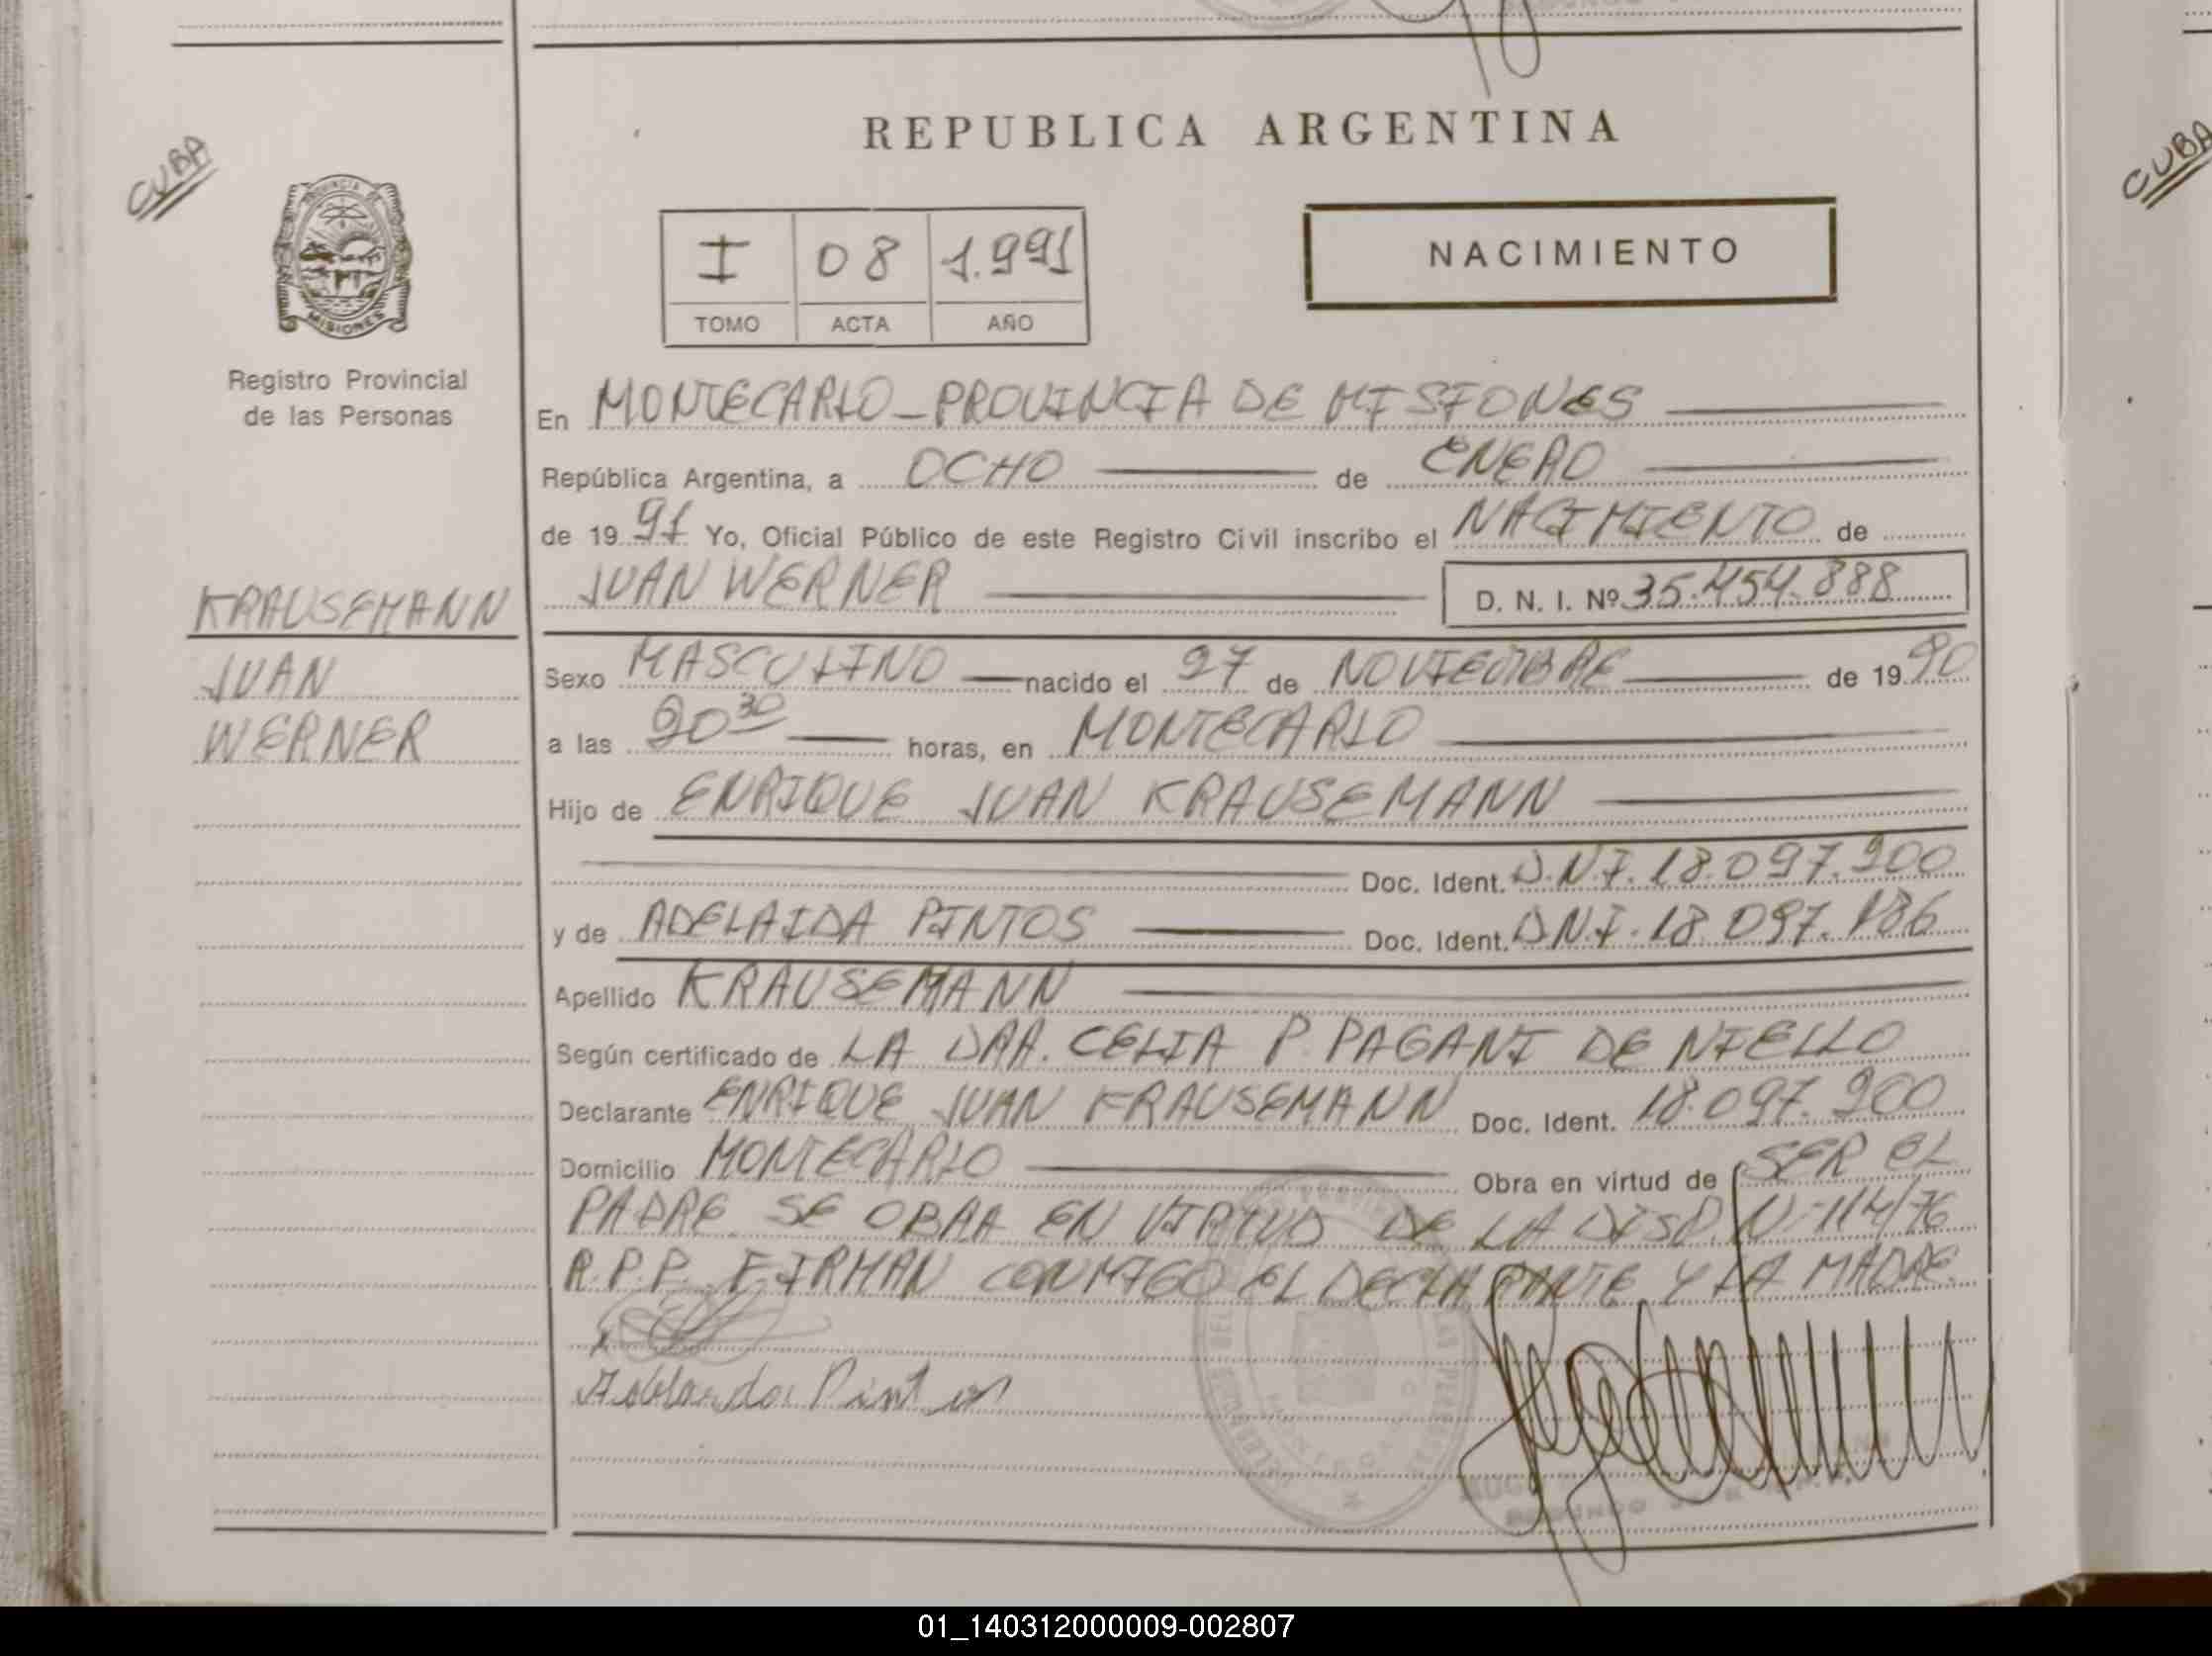 REPUBLICA ARGENTINA
CUBA
CUBA
PROVINCIA DE
MISIONES
I 08 1.991
TOMO ACTA AÑO
NACIMIENTO
Registro Provincial
de las Personas
En MONTECARLO - PROVINCIA DE MISIONES
República Argentina, a OCHO de ENERO
de 1991 Yo, Oficial Público de este Registro Civil inscribo el NACIMIENTO de
KRAUSEMANN
JUAN WERNER D. N. I. Nº 35.454.888
JUAN
WERNER
Sexo MASCULINO nacido el 27 de NOVIEMBRE de 1990
a las 20 30 horas, en MONTECARLO
Hijo de ENRIQUE JUAN KRAUSEMANN
Doc. Ident. D.N.I. 18.097.900
y de ADELAIDA PINTOS Doc. Ident. D.N.I. 18.097.186
Apellido KRAUSEMANN
Según certificado de LA DRA. CELIA P. PAGANI DE NIELLO
Declarante ENRIQUE JUAN KRAUSEMANN Doc. Ident. 18.097.900
Domicilio MONTECARLO Obra en virtud de SER EL
PADRE. SE OBRA EN VIRTUD DE LA DISP. N 114/76
R.P.P. FIRMAN CONMIGO EL DECLARANTE Y LA MADRE.
Pintos
01_140312000009-002807